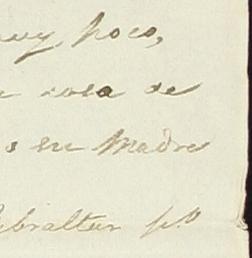 muy poco,
cosa de
su Madre
Gibraltar p.º